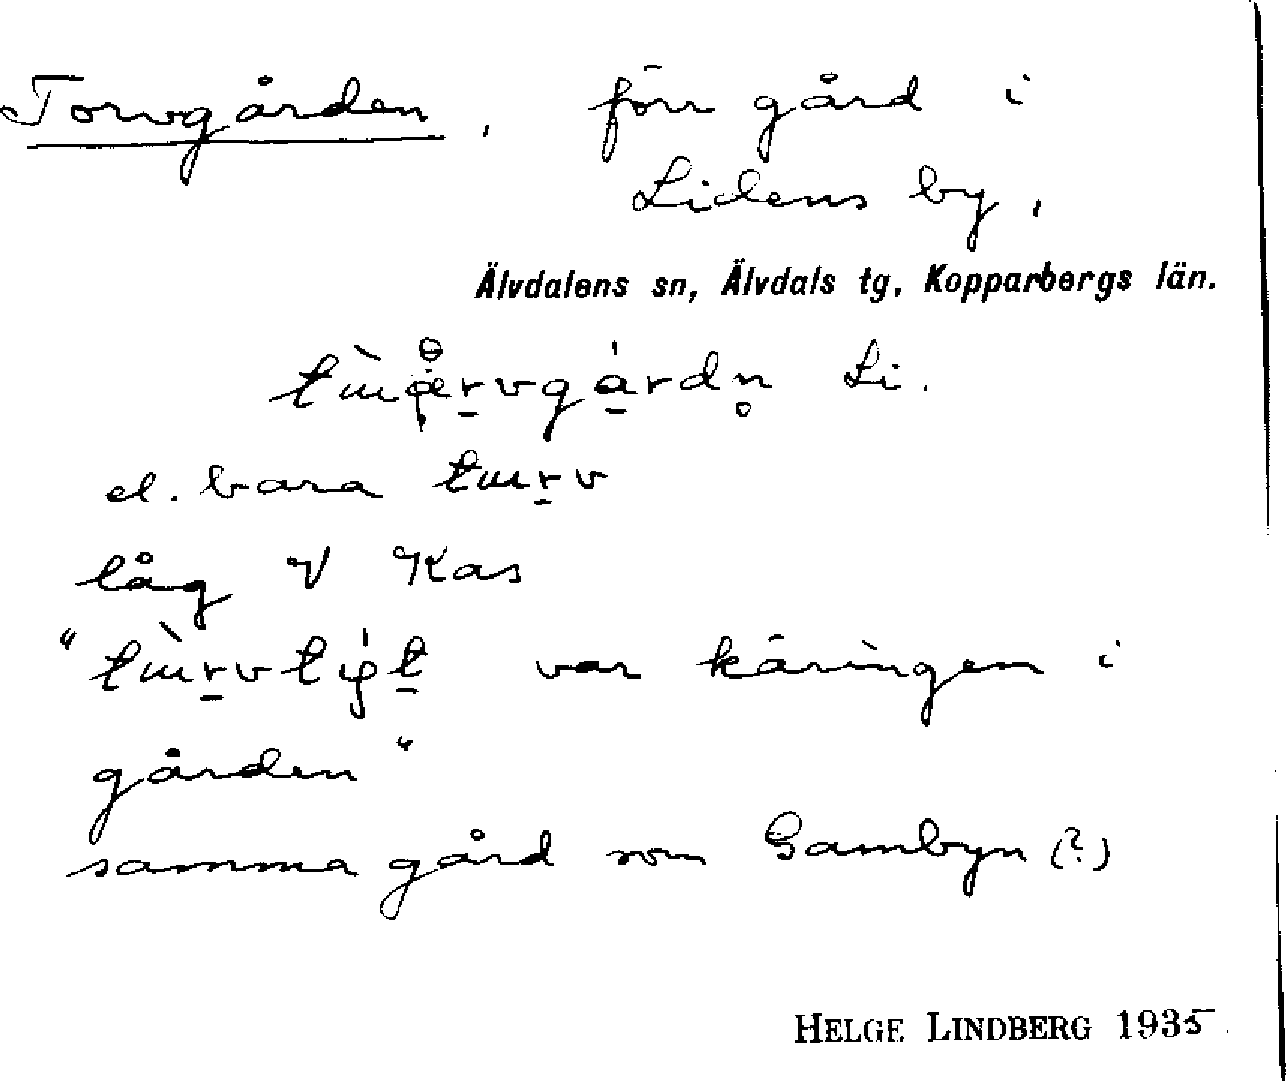 Torvgården, förr gård i
Lidens by,
Älvdalens sn, Älvdals tg, Kopparbergs län.
Li.
el. bara
låg V Kas
var käringen i
gården"
samma gård som Gambyn (?)
HELGE LINDBERG 1935